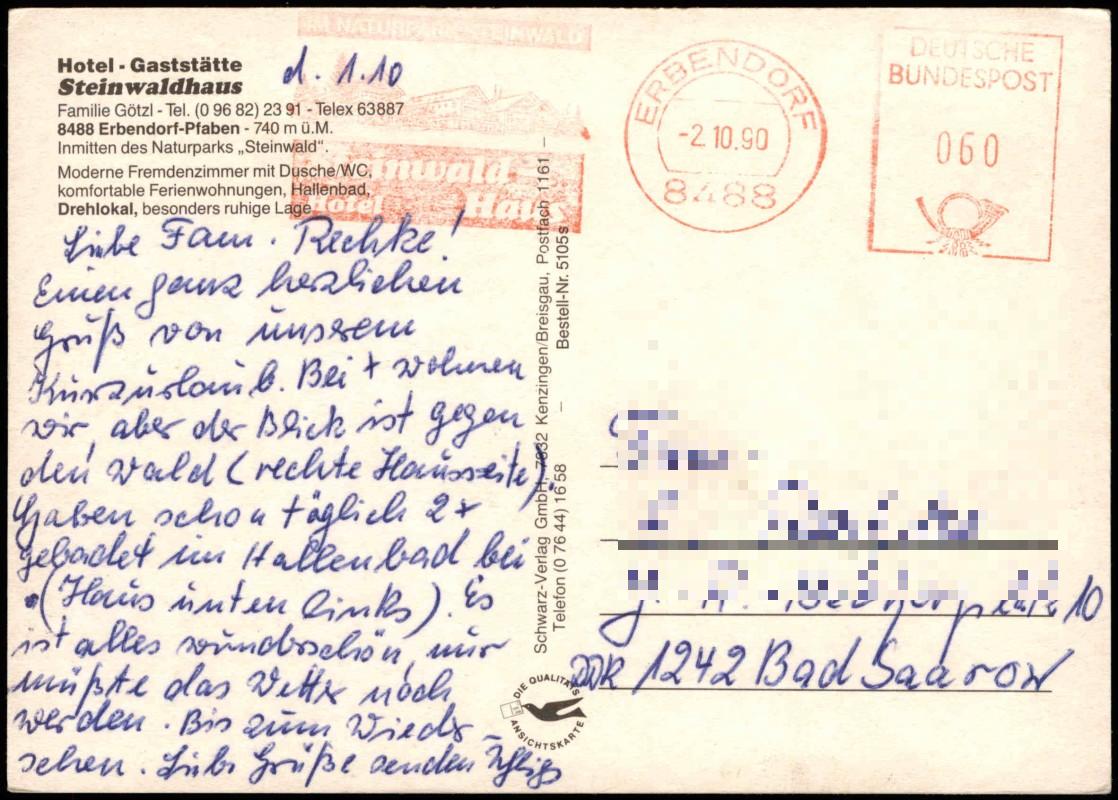 IM NATURPARK STEINWALD
Hotel - Gaststätte
Steinwaldhaus
Familie Götzl - Tel. (0 96 82) 23 91 - Telex 63887
8488 Erbendorf-Pfaben - 740 m ü.M.
Inmitten des Naturparks „Steinwald".
Moderne Fremdenzimmer mit Dusche/WC,
komfortable Ferienwohnungen, Hallenbad,
Drehlokal, besonders ruhige Lage
d. 1.10
Steinwald-
Hotel Haus
ERBENDORF
-2.10.90
8488
DEUTSCHE
BUNDESPOST
060
Liebe Fam. Rechke!
Einen ganz herzlichen
Gruß von unserem
Kurzurlaub. Bei + wohnen
wir, aber der Blick ist gegen
den Wald (rechte Hausseite).
Haben schon täglich 2x
gebadet im Hallenbad bei
• (Haus unten links). Es
ist alles wunderschön, nur
müßte das Wetter noch
werden. Bis zum Wieder-
sehen. Liebe Grüße senden
Schwarz-Verlag GmbH, 7832 Kenzingen/Breisgau, Postfach 1161 –
Telefon (0 76 44) 16 58 – Bestell-Nr. 5105s
DIE QUALITÄTS
ANSICHTSKARTE
10
DDR 1242 Bad Saarow